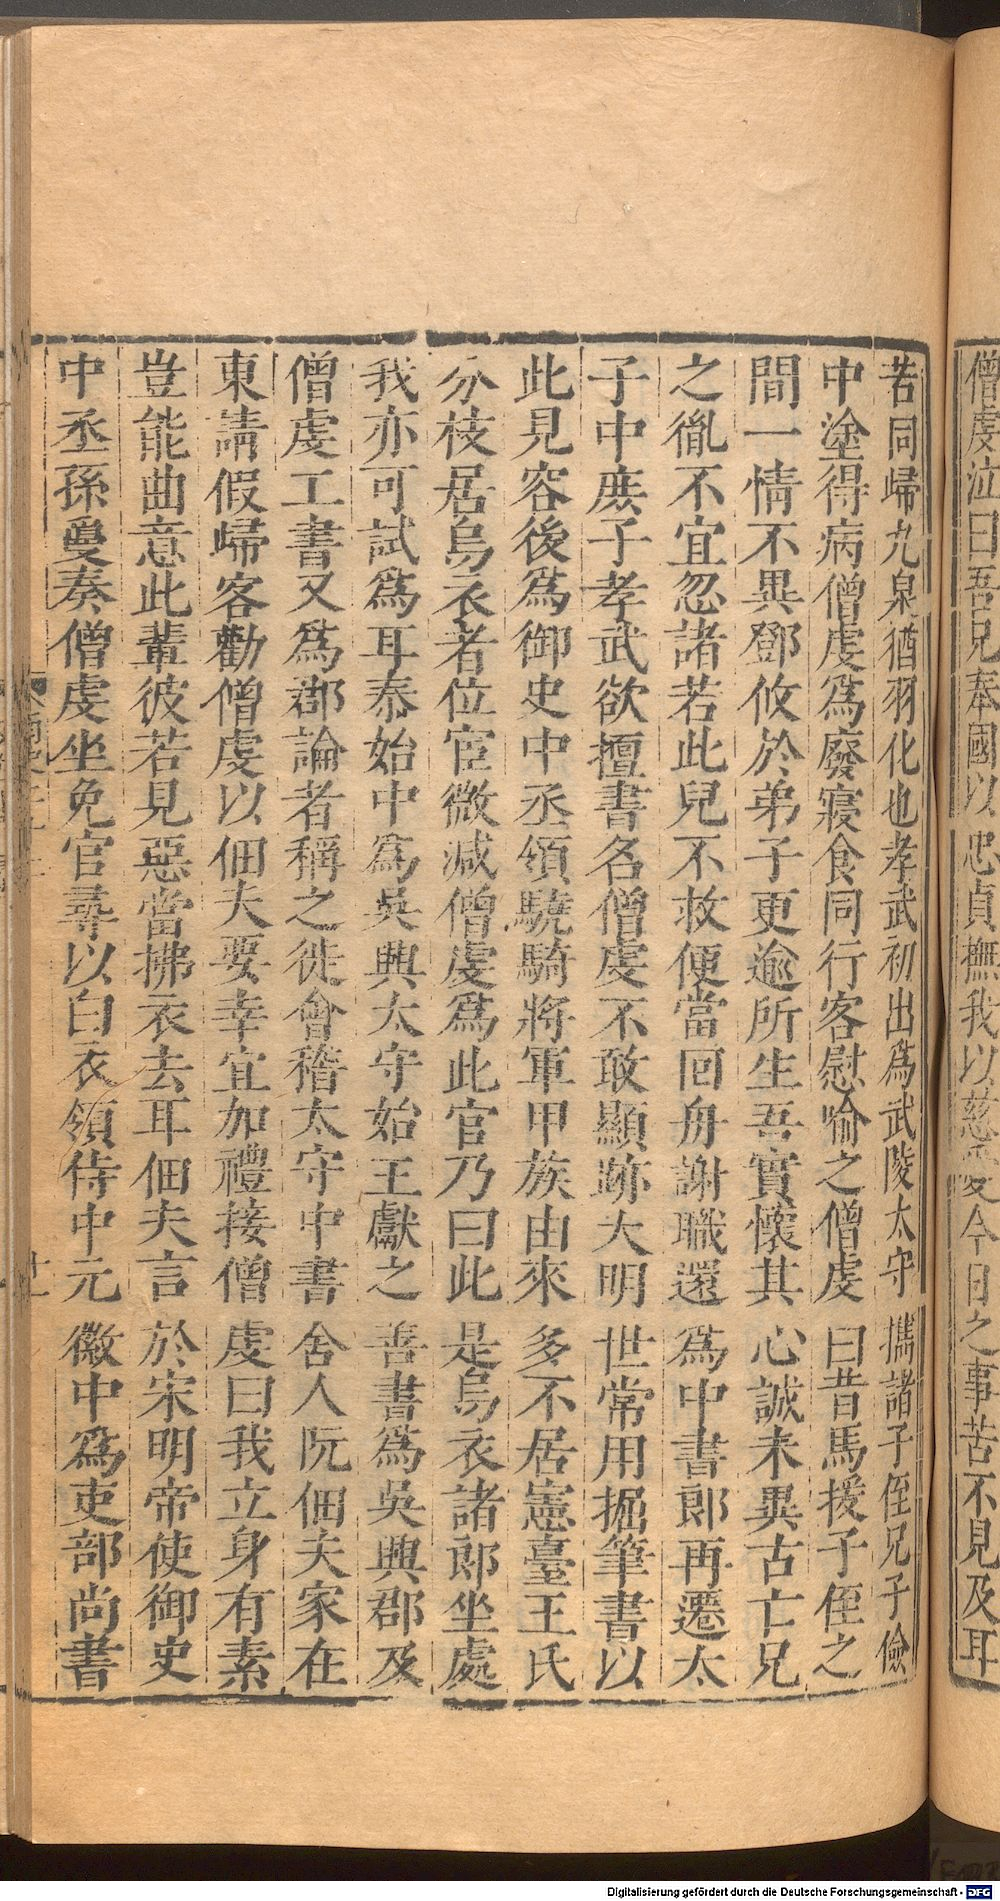 僧虔泣曰吾兄奉國以忠貞撫我以慈愛今日之事苦不見及耳
若同歸九泉猶羽化也孝武初出爲武陵太守攜諸子侄兄子儉
中塗得病僧虔爲廢寢食同行客慰喻之僧虔曰昔馬援子侄之
間一情不異鄧攸於弟子更逾所生吾實懷其心誠未異古亡兄
之胤不宜忽諸若此兒不救便當回舟謝職還爲中書郎再遷太
子中庶子孝武欲擅書名僧虔不敢顯跡大明世常用掘筆書以
此見容後爲御史中丞領驍騎將軍甲族由來多不居憲臺王氏
分枝居烏衣者位宦微減僧虔爲此官乃曰此是烏衣諸郎坐處
我亦可試爲耳泰始中爲吳興太守始王獻之善書爲吳興郡及
僧虔工書又爲郡論者稱之徙會稽太守中書舍人阮佃夫家在
東請假歸客勸僧虔以佃夫要幸宜加禮接僧虔曰我立身有素
豈能曲意此輩彼若見惡當拂衣去耳佃夫言於宋明帝使御史
中丞孫敻奏僧虔坐免官尋以白衣領侍中元徽中爲吏部尚書
Digitalisierung gefördert durch die Deutsche Forschungsgemeinschaft - DFG